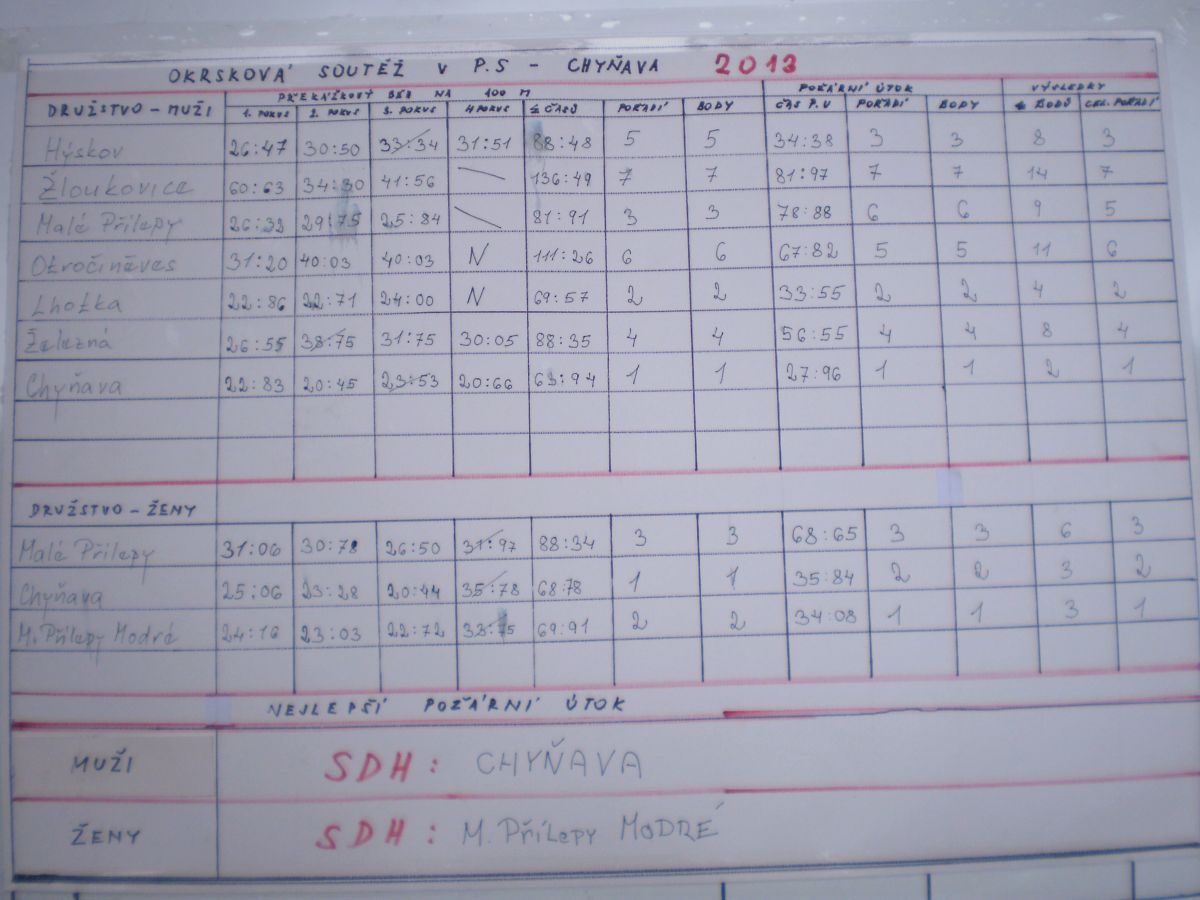 OKRSKOVÁ SOUTĚŽ V P.S - CHYŇAVA 2013
DRUŽSTVO - MUŽI PŘEKÁŽKOVÝ BĚH NA 100 M POŽÁRNÍ ÚTOK VÝSLEDKY
1. POKUS 2. POKUS 3. POKUS 4 POKUS Σ ČASŮ POŘADÍ BODY ČAS P.U POŘADÍ BODY BODŮ CEL. POŘADÍ
Hýskov 26:47 30:50 33:34 31:51 88:48 5 5 34:38 3 3 8 3
Žloukovice 60:63 34:30 41:56 136:49 7 7 81:97 7 7 14 7
Malé Přílepy 26:32 29:75 25:84 81:91 3 3 78:88 6 6 9 5
Otročiněves 31:20 40:03 40:03 N 111:26 6 6 67:82 5 5 11 6
Lhotka 22:86 22:71 24:00 N 69:57 2 2 33:55 2 2 4 2
Železná 26:55 38:75 31:75 30:05 88:35 4 4 56:55 4 4 8 4
Chyňava 22:83 20:45 23:53 20:66 63:94 1 1 27:96 1 1 2 1
DRUŽSTVO - ŽENY
Malé Přílepy 31:06 30:78 26:50 31:97 88:34 3 3 68:65 3 3 6 3
Chyňava 25:06 23:28 20:44 35:78 68:78 1 1 35:84 2 2 3 2
M. Přílepy Modré 24:16 23:03 22:72 33:75 69:91 2 2 34:08 1 1 3 1
NEJLEPŠÍ POŽÁRNÍ ÚTOK
MUŽI SDH: CHYŇAVA
ŽENY SDH: M. Přílepy MODRÉ